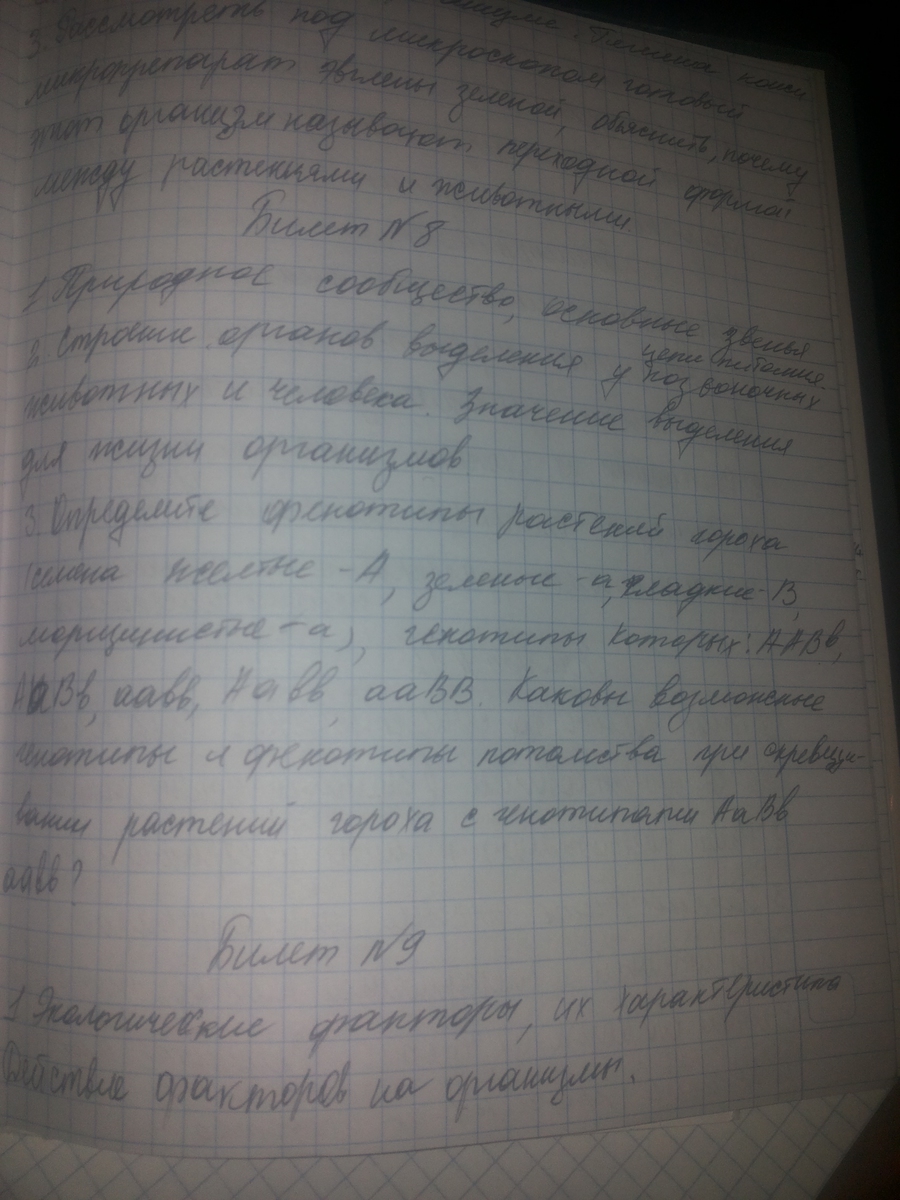 Гигиена кожи
3. Рассмотреть под микроскопом готовый
микропрепарат эвглены зеленой, обьяснить, почему
этот организм называют переходной формой
между растениями и животными.
Билет №8
1 Природное сообщество, основные звенья
цепи питания.
2. Строение органов выделения у позвоночных
животных и человека. Значение выделения
для жизни организмов
3. Определите фенотипы растений гороха
(семена желтые - А, зеленые - а, гладкие - В,
морщинистые - а), генотипы которых: ААВв,
АаВв, аавв, Аавв, ааВВ. Каковы возможные
генотипы и фенотипы потомства при скрещи-
вании растений гороха с генотипами АаВв
аавв?
Билет №9
1 Экологические факторы, их характеристика
Действие факторов на организмы.